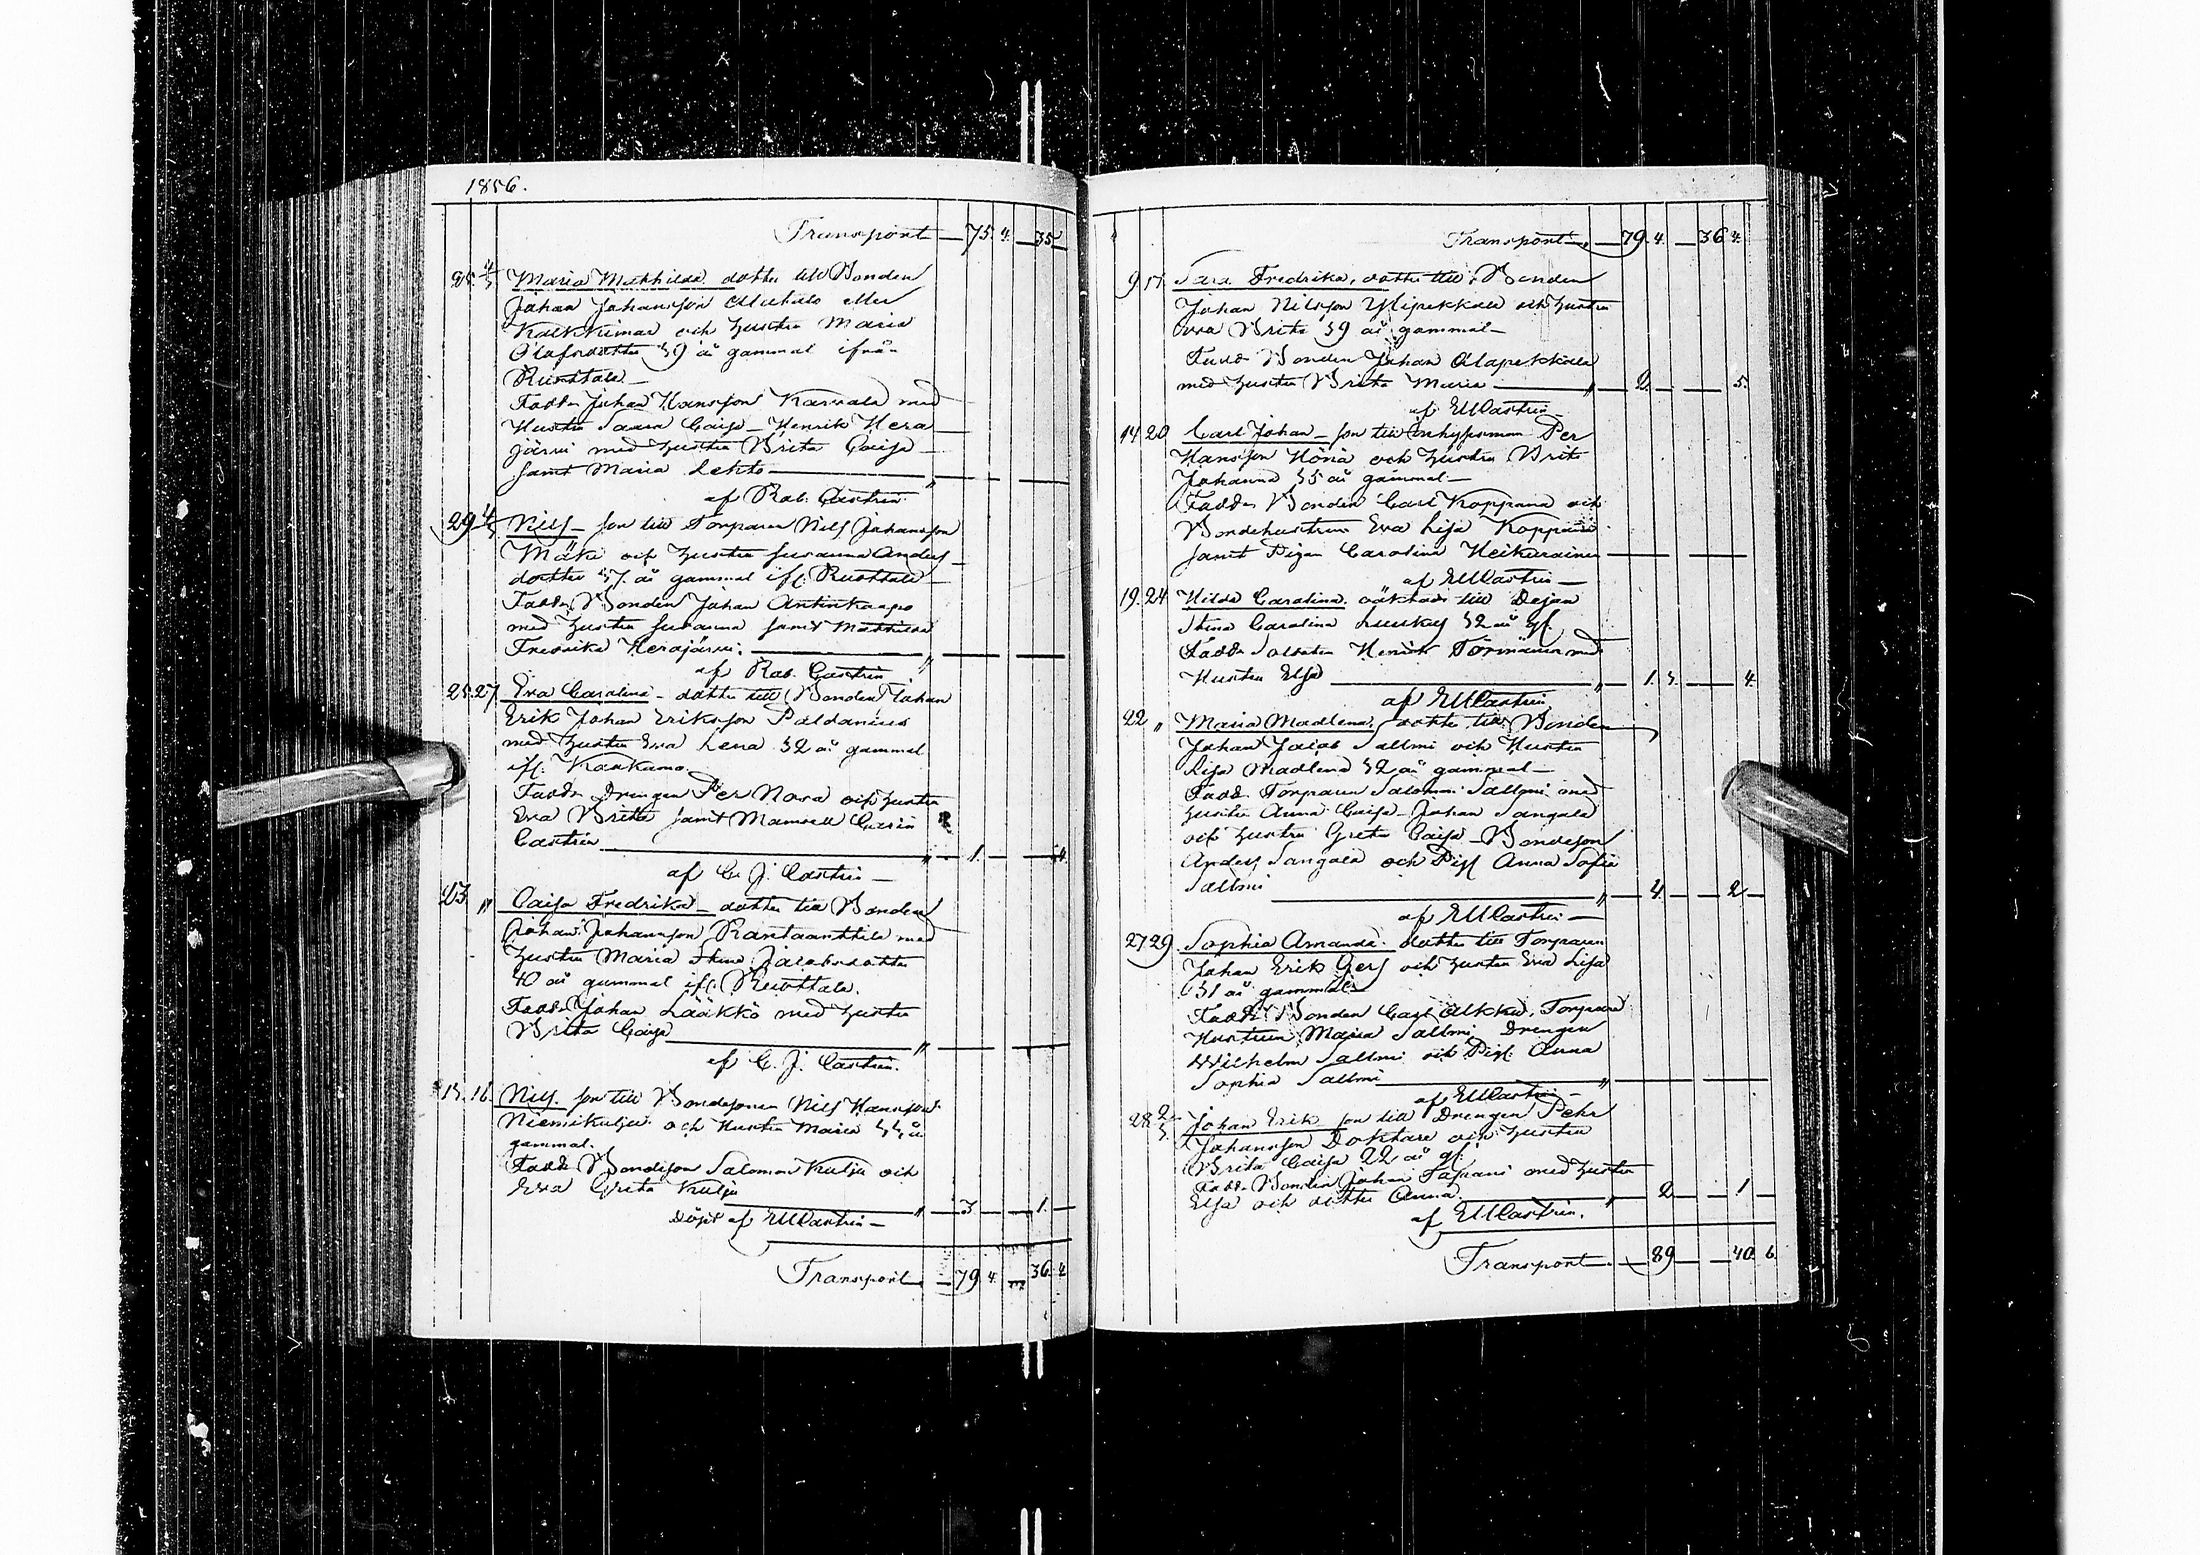 1856.
Transport 75. 4. 35
25. 4/3 Maria Mathilda dotter till Bonden
Johan Johansson eller
och hustru Maria
Olafsdotter 39 år gammal ifrån
Ruottala
Fadd. Johan Hansson Karvala med
Hustru Saara Caisa Henrik Hera
järvi med hustru Brita Caisa
samt Maria Lehto
af Rab. Castrén
29 4/3 Nils son till Torparen Nils Johansson
Mäki och hustru Susanna Anders
dotter 37 år gammal if. Ruottala
Fadd. Bonden Johan Antinkaapo
med hustru Susanna samt Mathilda
Fredrika Herajärvi.
af Rab. Castrén
25. 27. Eva Carolina dotter till Bonden Johan
Erik Johan Eriksson Paldanius
med hustru Eva Lena 32 år gammal
if. Kaakamo.
Fadd. Drengen Per Nara och hustru
Eva Brita samt Mamsell Maria
Castrén 1. 4.
af C. J. Castrén
23 " Caisa Fredrika dotter till Bonden
Johan Johansson Rantaanttila med
hustru Maria Stina Jacobsdotter
40 år gammal if. Ruottala.
Fadd. Johan Lääkkö med hustru
Brita Caisa
af C. J. Castrén.
15. 16. Nils. son till Bondesonen Nils Hansson
Niemikulju och Hustru Maria år
gammal.
Fadd. Bondeson Salomon Kulju och
Eva Greta Kulju
" 3 1.
Döpt af EMCastrén
Transport 79 4. 36. 4
Transport 79. 4. 36 4.
9 17 Sara Fredrika, dotter till Bonden
Johan Nilsson Ylipekkala och hustru
Eva Brita 39 år gammal
Fadd. Bonden Johan Alapekkala
med hustru Brita Maria " 2. 5.
af EMCastrén
14 20 Carl Johan son till Inhysesman Per
Hansson Hönä och hustru Brit
Johanna 35 år gammal
Fadd. Bonden Carl Koppana och
Bondehustrun Eva Lisa Koppana
samt Pigan Carolina Heikurainen
af EMCastrén
19. 24 Hilda Carolina. oäkta till Dejan
Stina Carolina 32 år gl.
Fadd. Soldaten Henrik Törmänen med
Hustru Elsa " 1. 3. 4.
af EMCastrén
22 " Maria Madlena, dotter till Bonden
Johan Jacob Sallmi och Hustru
Lisa Madlena 32 år gammal
Fadd. Torparen Salomon Sallmi med
hustru Anna Caisa Johan Sangala
och hustru Greta Caisa Bondeson
Anders Sangala och Pig. Anna Sofia
Sallmi " 4. 2
af EMCastrén
27 29 Sophia Amanda. dotter till Torparen
Johan Erik och hustru Eva Lisa
31 år gammal
Fadd. Bonden Carl Alkku, Torpare
Hustrun Maria Sallmi Drengen
Wilhelm Sallmi och Pig. Anna
Sophia Sallmi "
af EMCastrén
28 2/3. Johan Erik son till Drengen Pehr
Johansson Doktare och hustru
Brita Caisa 22 år gl.
Fadd. Bonden Johan Tapani med hustru
Elsa och dotter Anna. " 2 1
af EMCastrén.
Transport. 89 40. 6.